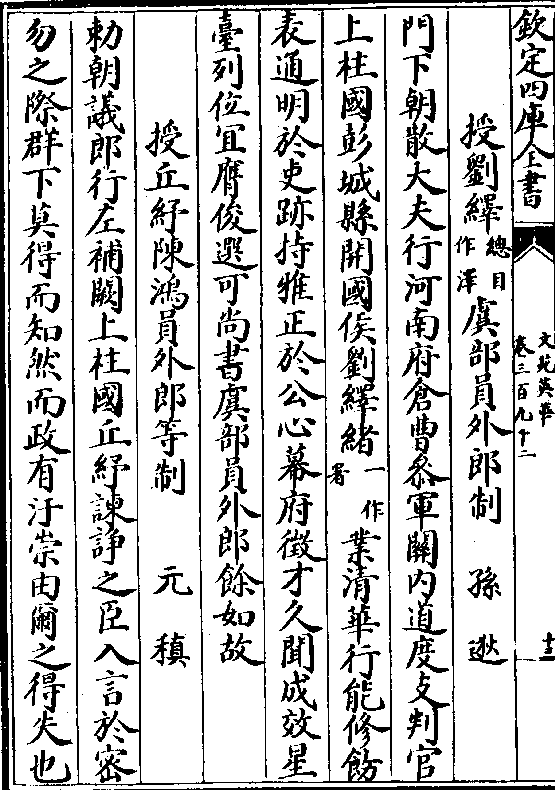 欽定四庫全書
文苑英華
卷三百九十二
十三
授劉繹總目作澤虞部員外郎制 孫逖
門下朝散大夫行河南府倉曹叅軍關内道度支判官
上柱國彭城縣開國侯劉繹緒一作署業清華行能修飭
表通明於吏跡持雅正於公心幕府徴才久聞成效星
臺列位宜膺俊選可尚書虞部員外郎餘如故
授丘紓陳鴻員外郎等制 元稹
勅朝議郎行左補闕上柱國丘紓諫諍之臣入言於密
勿之際群下莫得而知然而政有汙崇由爾之得失也